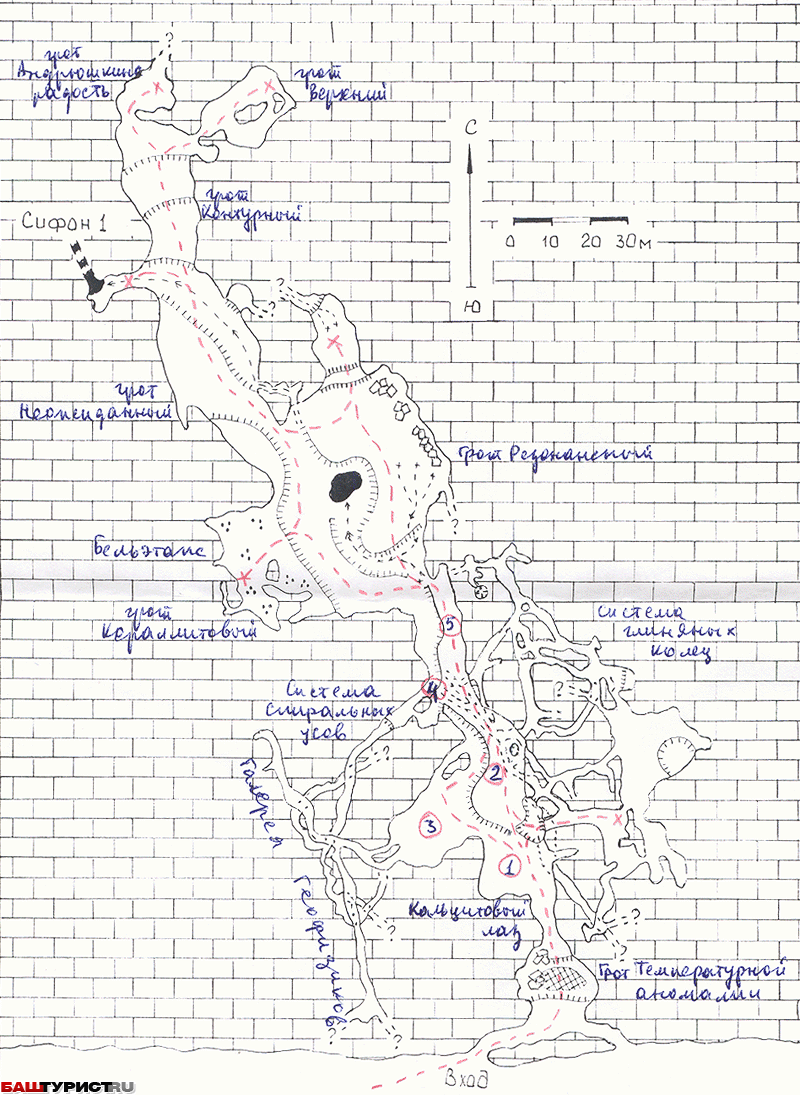 ?
грот
Андрюшкина
радость
грот
Верхний
С
грот
Контурный
Сифон 1
0 10 20 30м
?
?
Ю
грот
Неожиданный
Грот Резонансный
?
Бельэтаж
грот
Кораллитовый
5
Система
глиняных
колец
?
4
Система
спиральных
усов
?
2
Галерея
Геофизиков
3
1
Кальцитовый
лаз
?
?
?
?
Грот Температурной
аномалии
?
?
Вход
БАШТУРИСТ.RU